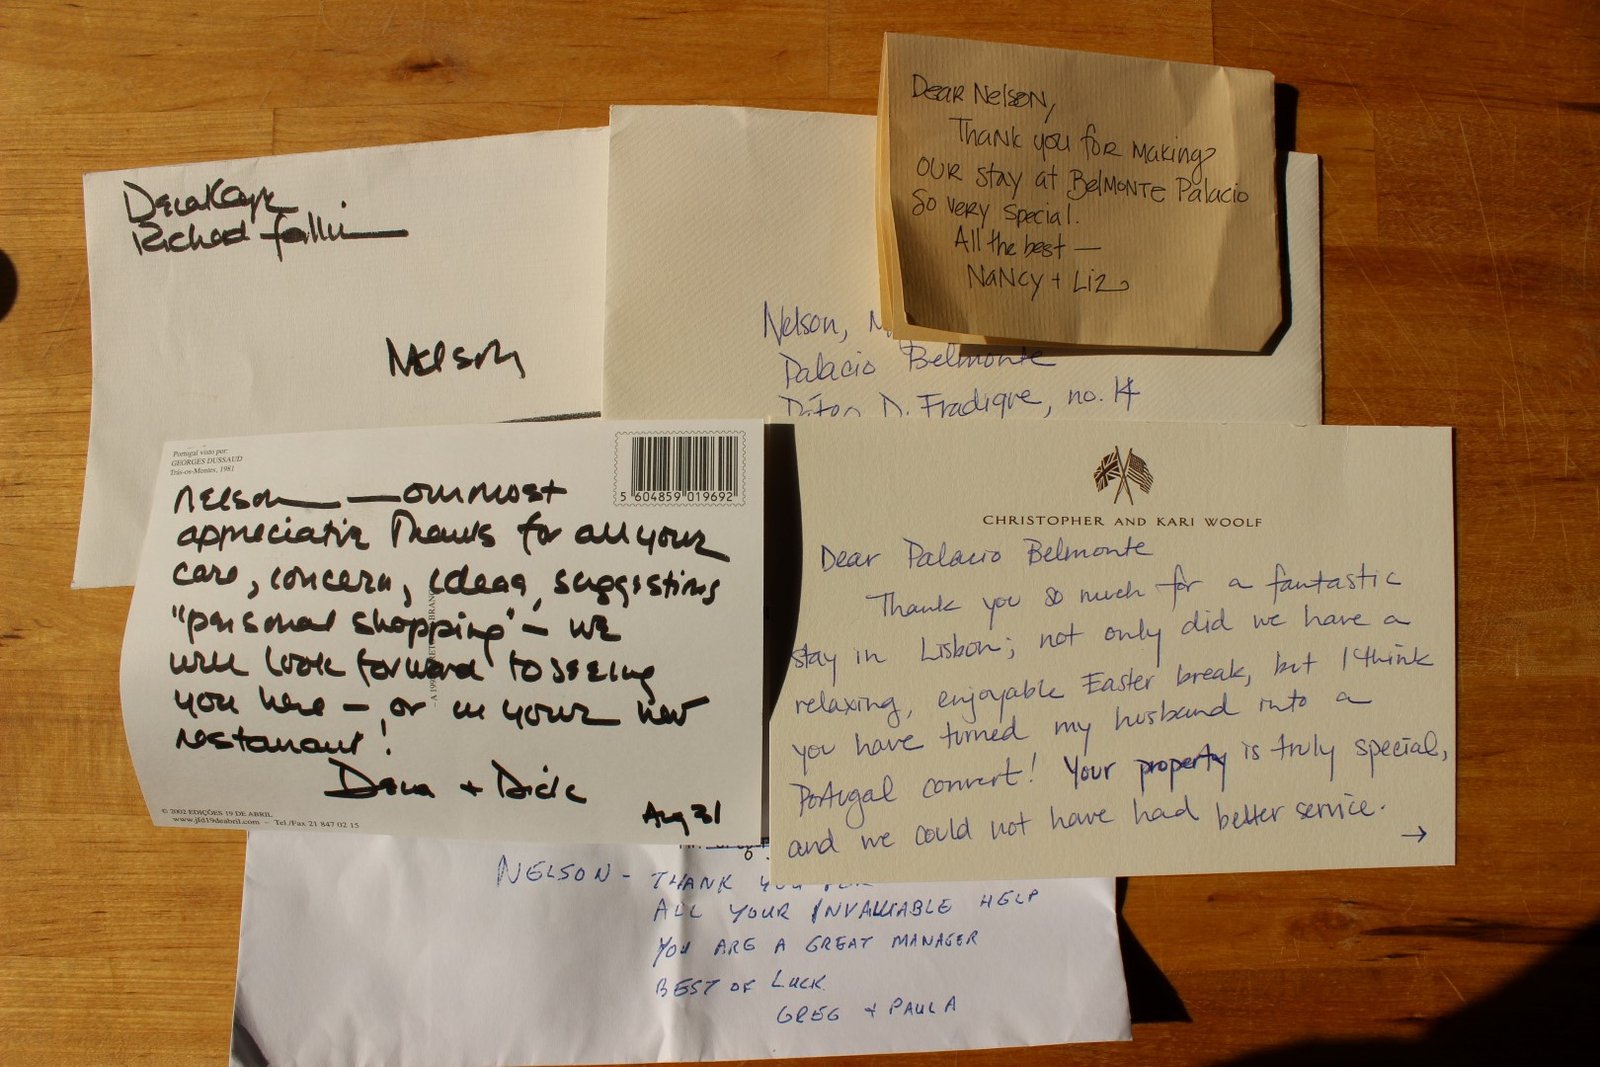 Dear Nelson,
Thank you for making
our stay at Belmonte Palacio
so very special.
All the best —
Nancy + Liz
Richard
Nelson
Nelson,
Palacio Belmonte
D. Fradique, no. 14
Portugal visto por:
GEORGES DUSSAUD
Trás-os-Montes, 1981
5 604859 019692
Nelson — our most
appreciative Thanks for all your
care, concern, ideas, suggestions
"personal shopping" — we
will look forward to seeing
you here — or in your new
restaurant!
Dana + Dick
Aug 31
© 2002 EDIÇÕES 19 DE ABRIL
www.jfd19deabril.com – Tel./Fax 21 847 02 15
CHRISTOPHER AND KARI WOOLF
Dear Palacio Belmonte
Thank you so much for a fantastic
stay in Lisbon; not only did we have a
relaxing, enjoyable Easter break, but I think
you have turned my husband into a
Portugal convert! Your property is truly special,
and we could not have had better service.
→
NELSON - THANK YOU FOR
ALL YOUR INVALUABLE HELP
YOU ARE A GREAT MANAGER
BEST OF LUCK
GREG + PAULA